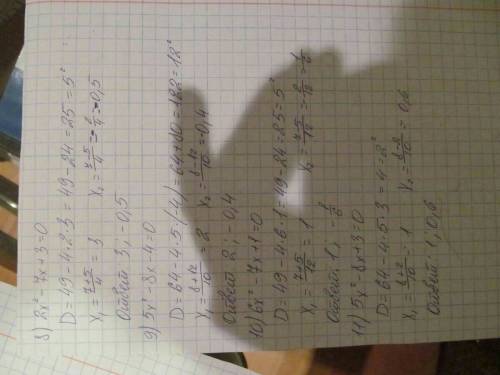 8) 2x² - 7x + 3 = 0
D = 49 - 4 · 2 · 3 = 49 - 24 = 25 = 5²
x₁ = (7+5)/4 = 3 x₂ = (7-5)/4 = -2/4 = -0,5
Ответ 3; -0,5
9) 5x² - 8x - 4 = 0
D = 64 - 4 · 5 · (-4) = 64 + 80 = 122 = 12²
x₁ = (8+12)/10 = 2 x₂ = (8-12)/10 = 0,4
Ответ 2; -0,4
10) 6x² - 7x + 1 = 0
D = 49 - 4 · 6 · 1 = 49 - 24 = 25 = 5²
x₁ = (7+5)/12 = 1 x₂ = (7-5)/12 = 2/12 = 1/6
Ответ: 1; -1/6
11) 5x² - 8x + 3 = 0
D = 64 - 4 · 5 · 3 = 4 = 2²
x₁ = (8+2)/10 = 1 x₂ = (8-2)/10 = 0,6
Ответ: 1; 0,6